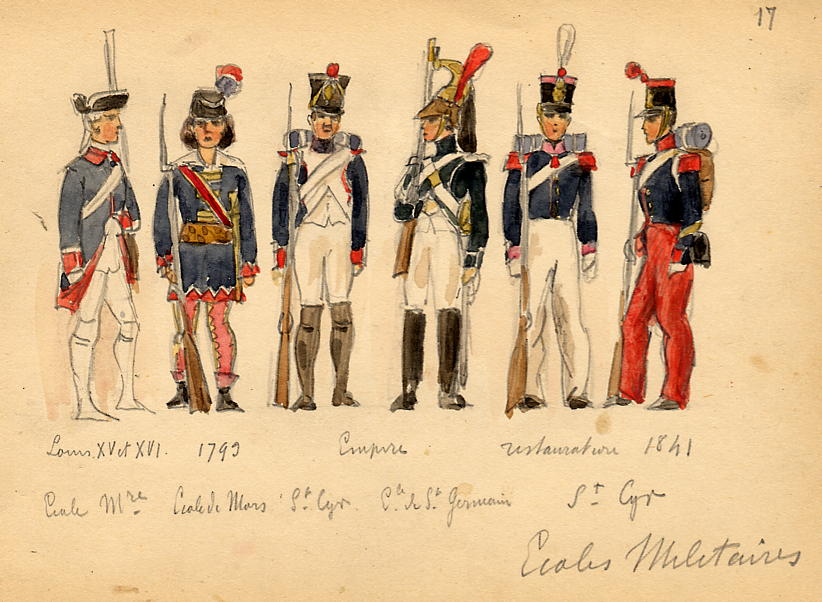 17
Louis XV et XVI. 1793 Empire restauration 1841
Ecole Mre Ecole de Mars St Cyr. Cle de St Germain St Cyr
Ecoles Militaires